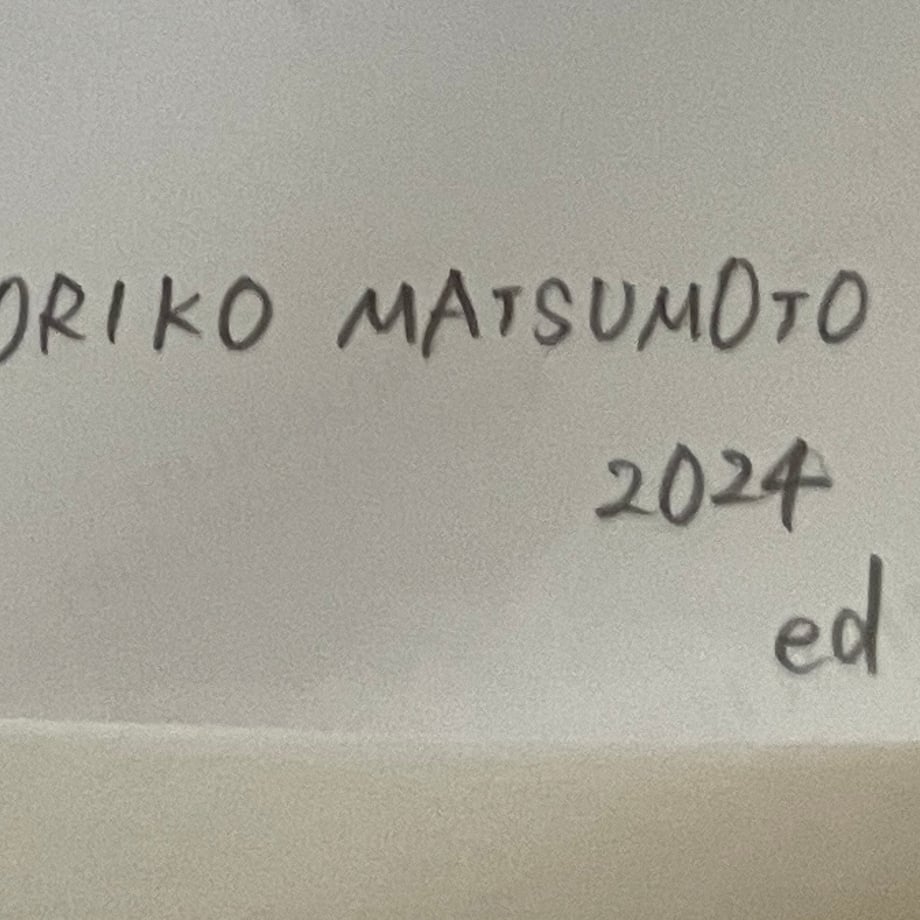 ORIKO MATSUMOTO
2024
ed